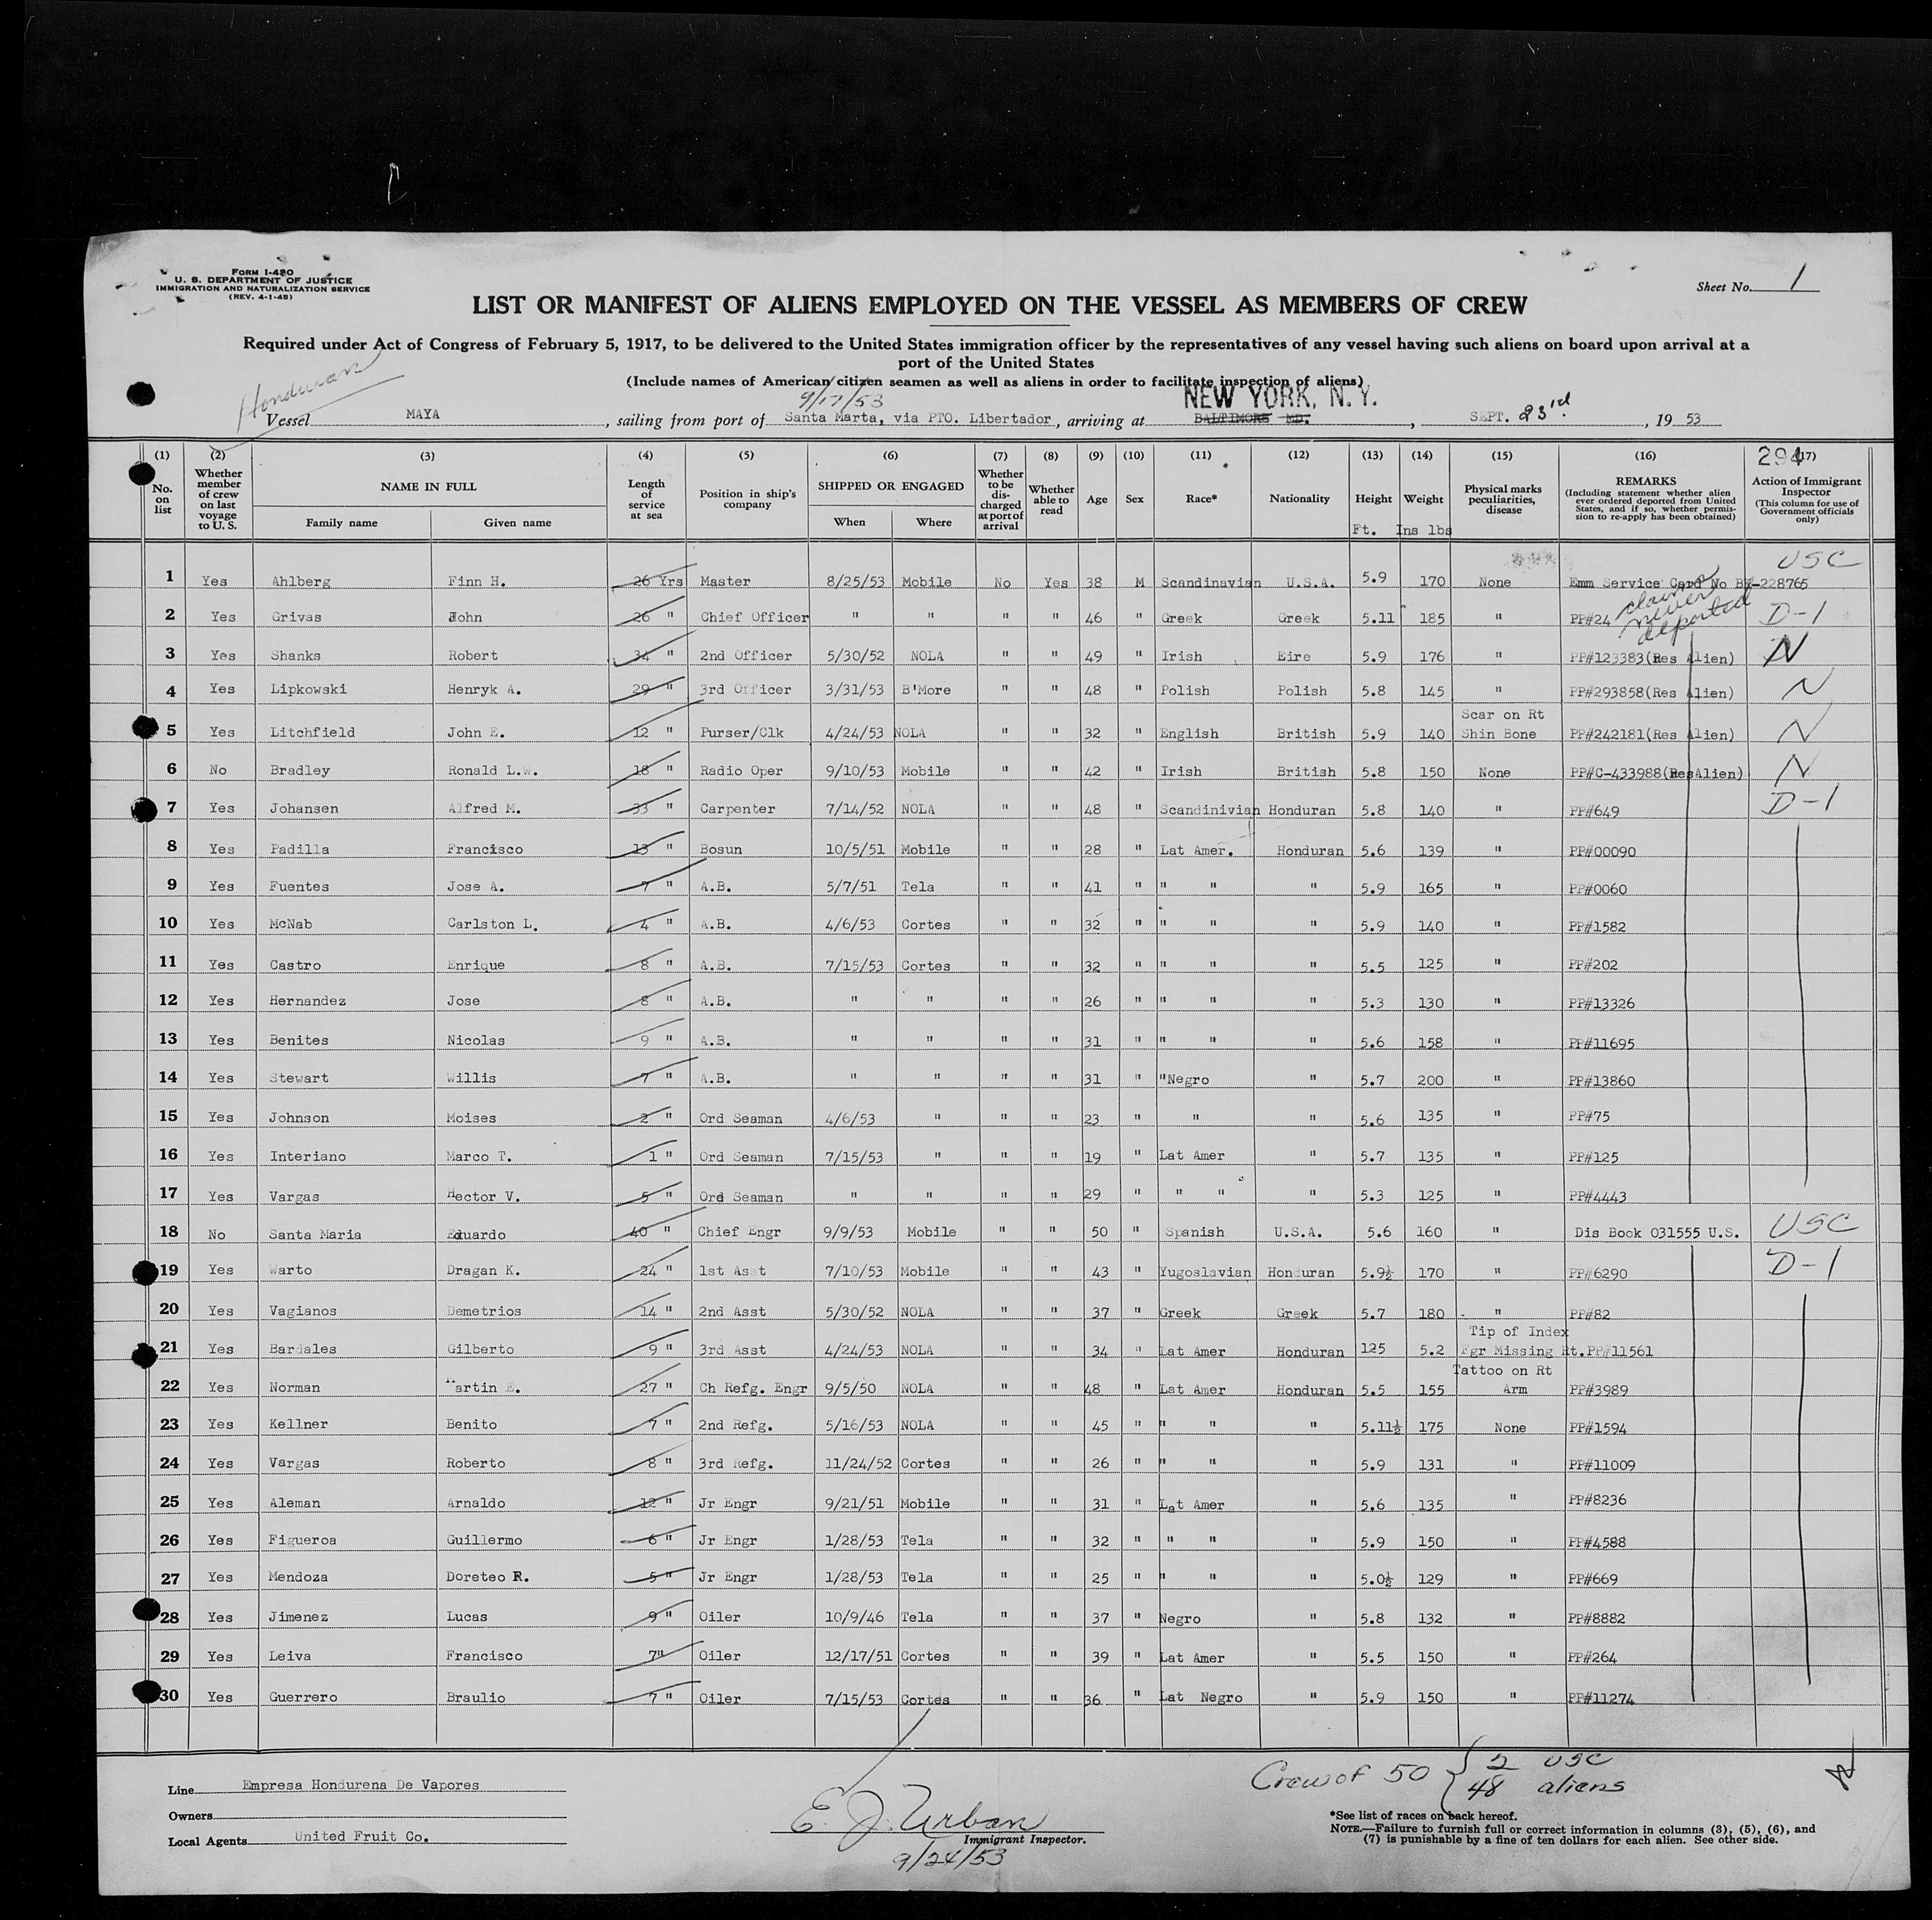 FORM I-480
U. S. DEPARTMENT OF JUSTICE
IMMIGRATION AND NATURALIZATION SERVICE
(REV. 4-1-45)
Sheet No. 1
LIST OR MANIFEST OF ALIENS EMPLOYED ON THE VESSEL AS MEMBERS OF CREW
Required under Act of Congress of February 5, 1917, to be delivered to the United States immigration officer by the representatives of any vessel having such aliens on board upon arrival at a
port of the United States
(Include names of American citizen seamen as well as aliens in order to facilitate inspection of aliens)
Honduran
9/17/53
NEW YORK, N.Y.
Vessel MAYA, sailing from port of Santa Marta, via PTO. Libertador, arriving at BALTIMORE MD., SEPT. 23rd, 19 53
294
(1) (2) (3) (4) (5) (6) (7) (8) (9) (10) (11) (12) (13) (14) (15) (16) (17)
No. on list
Whether member of crew on last voyage to U. S.
NAME IN FULL
Family name Given name
Length of service at sea
Position in ship's company
SHIPPED OR ENGAGED
When Where
Whether to be discharged at port of arrival
Whether able to read
Age
Sex
Race*
Nationality
Height
Weight
Ft. Ins lbs
Physical marks peculiarities, disease
REMARKS
(Including statement whether alien ever ordered deported from United States, and if so, whether permission to re-apply has been obtained)
Action of Immigrant Inspector
(This column for use of Government officials only)
1 Yes Ahlberg Finn H. 26 Yrs Master 8/25/53 Mobile No Yes 38 M Scandinavian U.S.A. 5.9 170 None Emm Service Card No BK-228765 USC
2 Yes Grivas John 26 " Chief Officer " " " " 46 " Greek Greek 5.11 185 " PP#24 claims never deported D-1
3 Yes Shanks Robert 34 " 2nd Officer 5/30/52 NOLA " " 49 " Irish Eire 5.9 176 " PP#123383(Res Alien) N
4 Yes Lipkowski Henryk A. 29 " 3rd Officer 3/31/53 B'More " " 48 " Polish Polish 5.8 145 " PP#293858(Res Alien) N
5 Yes Litchfield John E. 12 " Purser/Clk 4/24/53 NOLA " " 32 " English British 5.9 140 Scar on Rt Shin Bone PP#242181(Res Alien) N
6 No Bradley Ronald L.W. 18 " Radio Oper 9/10/53 Mobile " " 42 " Irish British 5.8 150 None PP#C-433988(ResAlien) N
7 Yes Johansen Alfred M. 33 " Carpenter 7/14/52 NOLA " " 48 " Scandinivian Honduran 5.8 140 " PP#649 D-1
8 Yes Padilla Francisco 13 " Bosun 10/5/51 Mobile " " 28 " Lat Amer. Honduran 5.6 139 " PP#00090
9 Yes Fuentes Jose A. 7 " A.B. 5/7/51 Tela " " 41 " " " " 5.9 165 " PP#0060
10 Yes McNab Carlston L. 4 " A.B. 4/6/53 Cortes " " 32 " " " " 5.9 140 " PP#1582
11 Yes Castro Enrique 8 " A.B. 7/15/53 Cortes " " 32 " " " " 5.5 125 " PP#202
12 Yes Hernandez Jose 8 " A.B. " " " " 26 " " " " 5.3 130 " PP#13326
13 Yes Benites Nicolas 9 " A.B. " " " " 31 " " " " 5.6 158 " PP#11695
14 Yes Stewart Willis 7 " A.B. " " " " 31 " "Negro " 5.7 200 " PP#13860
15 Yes Johnson Moises 2 " Ord Seaman 4/6/53 " " " 23 " " " 5.6 135 " PP#75
16 Yes Interiano Marco T. 1 " Ord Seaman 7/15/53 " " " 19 " Lat Amer " 5.7 135 " PP#125
17 Yes Vargas Hector V. 5 " Ord Seaman " " " " 29 " " " " 5.3 125 " PP#4443
18 No Santa Maria Eduardo 40 " Chief Engr 9/9/53 Mobile " " 50 " Spanish U.S.A. 5.6 160 " Dis Book 031555 U.S. USC
19 Yes Warto Dragan K. 24 " 1st Asst 7/10/53 Mobile " " 43 " Yugoslavian Honduran 5.9½ 170 " PP#6290 D-1
20 Yes Vagianos Demetrios 14 " 2nd Asst 5/30/52 NOLA " " 37 " Greek Greek 5.7 180 " PP#82
21 Yes Bardales Gilberto 9 " 3rd Asst 4/24/53 NOLA " " 34 " Lat Amer Honduran 125 5.2 Tip of Index Fgr Missing Rt. PP#11561
22 Yes Norman Martin E. 27 " Ch Refg. Engr 9/5/50 NOLA " " 48 " Lat Amer Honduran 5.5 155 Tattoo on Rt Arm PP#3989
23 Yes Kellner Benito 7 " 2nd Refg. 5/16/53 NOLA " " 45 " " " " 5.11½ 175 None PP#1594
24 Yes Vargas Roberto 8 " 3rd Refg. 11/24/52 Cortes " " 26 " " " " 5.9 131 " PP#11009
25 Yes Aleman Arnaldo 12 " Jr Engr 9/21/51 Mobile " " 31 " Lat Amer " 5.6 135 " PP#8236
26 Yes Figueroa Guillermo 6 " Jr Engr 1/28/53 Tela " " 32 " " " " 5.9 150 " PP#4588
27 Yes Mendoza Doreteo R. 5 " Jr Engr 1/28/53 Tela " " 25 " " " " 5.0½ 129 " PP#669
28 Yes Jimenez Lucas 9 " Oiler 10/9/46 Tela " " 37 " Negro " 5.8 132 " PP#8882
29 Yes Leiva Francisco 7" Oiler 12/17/51 Cortes " " 39 " Lat Amer " 5.5 150 " PP#264
30 Yes Guerrero Braulio 7 " Oiler 7/15/53 Cortes " " 36 " Lat Negro " 5.9 150 " PP#11274
Line Empresa Hondurena De Vapores
Owners
Local Agents United Fruit Co.
E. J. Urban
Immigrant Inspector.
9/24/53
Crew of 50 { 2 USC
48 aliens
*See list of races on back hereof.
NOTE.—Failure to furnish full or correct information in columns (3), (5), (6), and
(7) is punishable by a fine of ten dollars for each alien. See other side.